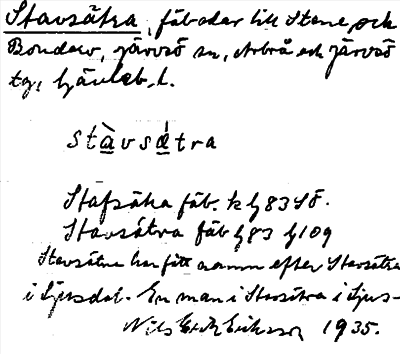 Stavsätra, fäbodar till Stene och
Bondarv, Järvsö sn, Arbrå och Järvsö
tg, Gävleb. l.
stàvsætra
Stafsätra fäb. k G83 SÖ.
Stavsätra fäb G83 G109
Stavsätra har fått namn efter Stavsätra
i Ljusdal. En man i Stavsätra i Ljus-
Nils Erik Eriksson 1935.